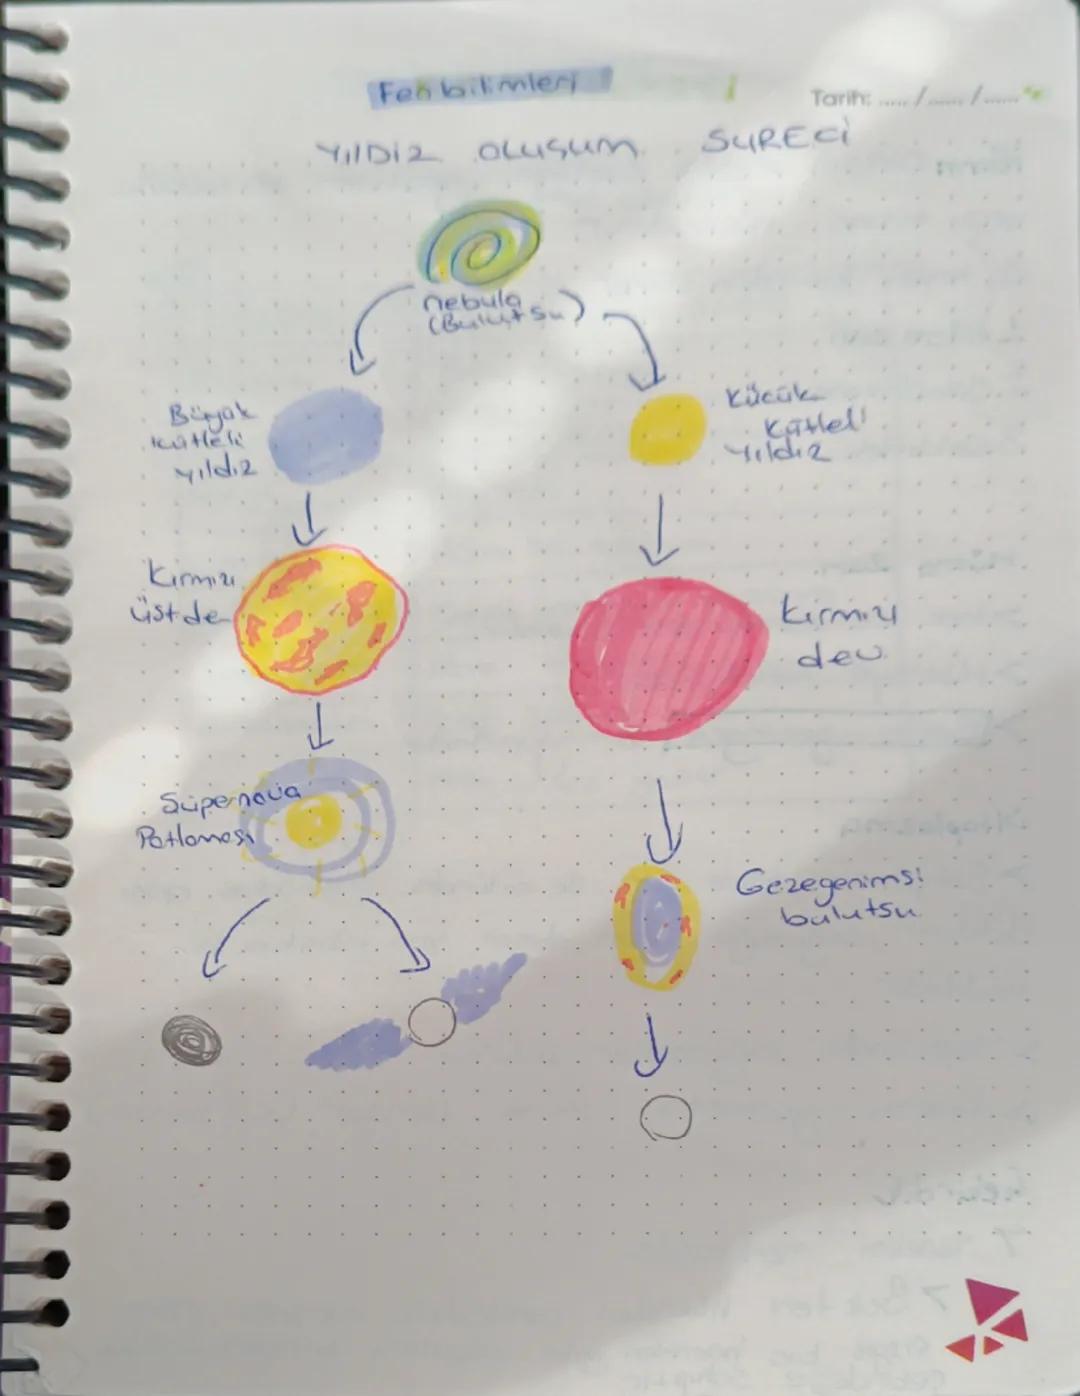 Fen bilimleri
Tarih: ...../....../......
YILDIZ OLUŞUM SÜRECİ
nebula
(Bulutsu)
Büyük
kütleli
yıldız
Küçük
kütleli
yıldız
Kırmızı
üstde
Kırmızı
dev
Süpernova
Patlaması
Gezegenimsi
bulutsu